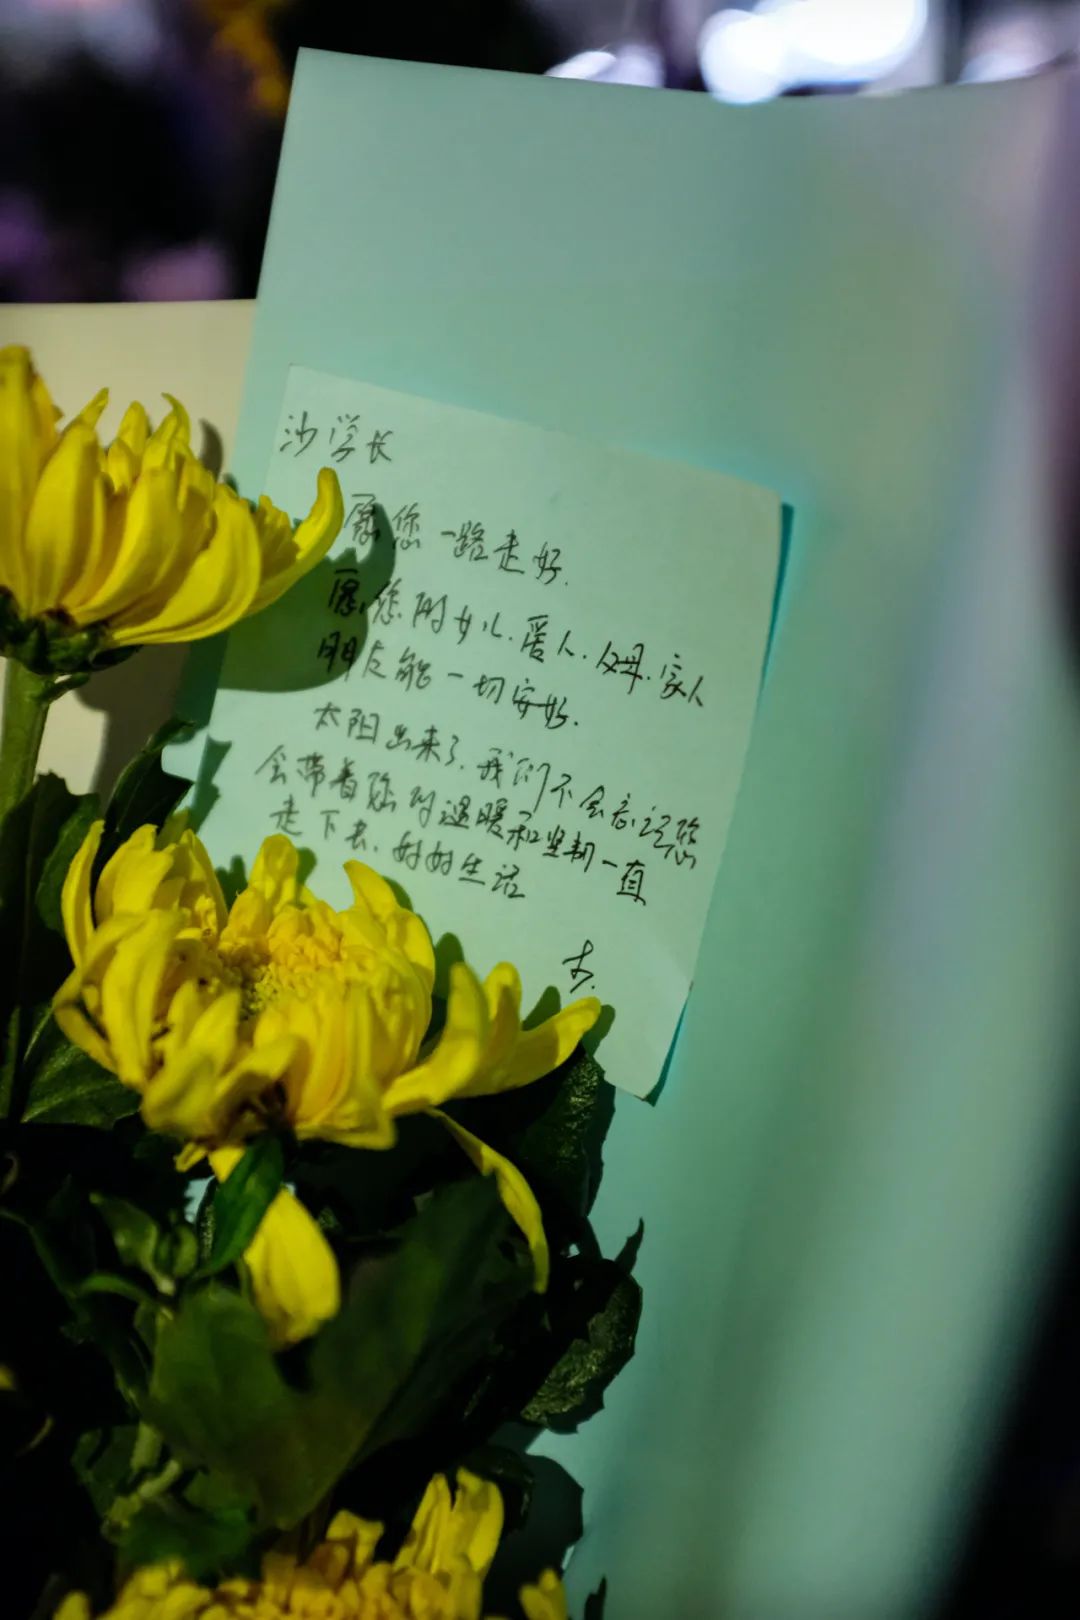 沙学长
愿您一路走好.
愿您的女儿.爱人.父母.家人
朋友能一切安好.
太阳出来了.我们不会忘记您
会带着您的温暖和坚韧一直
走下去.好好生活